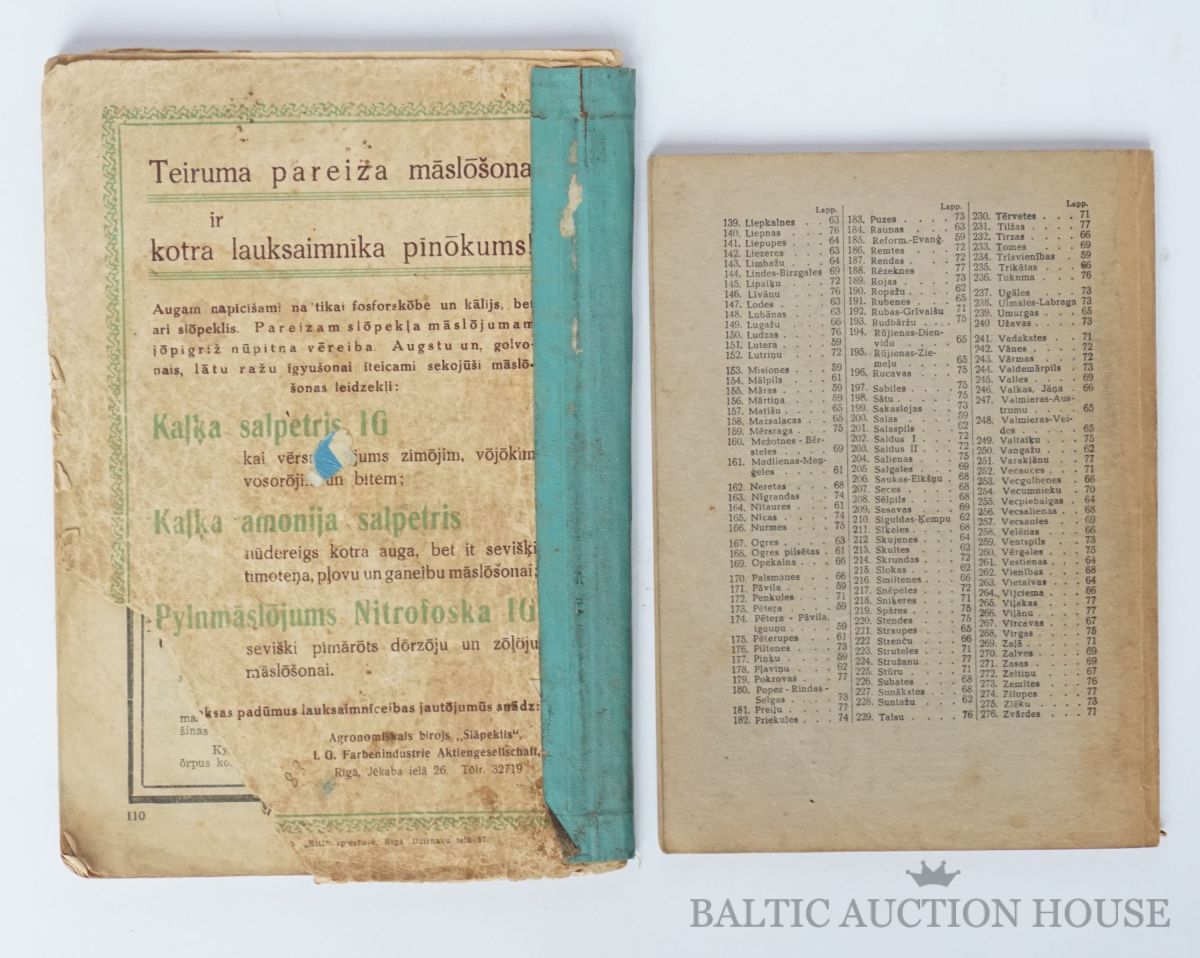 Teiruma pareiza māslōšona
ir
kotra lauksaimnīka pīnōkums!
Augam napīcīšami na tikai fosforskōbe un kālijs, bet
ari slōpeklis. Pareizam slōpekļa māslōjumam
jōpīgrīž nūpitna vēreiba. Augstu un, golvo-
nais, lātu ražu īgyušonai īteicami sekojūši māslō-
šonas leidzekli:
Kaļķa salpetris IG
kai vērs jums zimōjim, vōjōkim
vosorōji un bitem;
Kaļķa amonija salpetris
nūdereigs kotra auga, bet it sevišķi
timoteņa, pļovu un ganeibu māslōšonai;
Pylnmāslōjums Nitrofoska IG
seviški pimārōts dōrzōju un zōļōju
māslōšonai.
ksas padūmus lauksaimnīceibas jautōjumūs snādz:
Agronomiskais birojs „Slāpeklis",
I. G. Farbenindustrie Aktiengesellschaft,
Rīgā, Jēkaba ielā 26. Tōlr. 32719
ma
šinas
Ky
ōrpus ko
110
Rīgā Dzirnavu ielā 57.
Lapp.
139. Liepkalnes . 63
140. Liepnas . . . 76
141. Liepupes . . 64
142. Liezeres . . . 63
143. Limbažu . . . 64
144. Lindes-Birzgales 69
145. Lipaiķu . . . 72
146. Līvānu . . . 76
147. Lodes . . . . 63
148. Lubānas . . . 63
149. Lugažu . . . 66
150. Ludzas . . . 76
151. Lutera . . . . 59
152. Lutriņu . . . 72
153. Misiones . . . 59
154. Mālpils . . . 61
155. Māras . . . . 59
156. Mārtiņa . . . 59
157. Matīšu . . . . 65
158. Mazsalacas . . 65
159. Mērsraga . . . 75
160. Mežotnes - Bēr-
steles . . . . 69
161. Madlienas-Meņ-
ģeles . . . . 61
162. Neretas . . . 68
163. Nīgrandas . . 74
164. Nītaures . . . 61
165. Nīcas . . . . 74
166. Nurmes . . . 75
167. Ogres . . . . 63
168. Ogres pilsētas . 61
169. Opekalna . . . 66
170. Palsmanes . . 66
171. Pāvila . . . . 59
172. Penkules . . . 71
173. Pētera . . . . 59
174. Pētera - Pāvila,
igauņu . . . . 59
175. Pēterupes . . . 61
176. Piltenes . . . 73
177. Piņķu . . . . 59
178. Pļaviņu . . . 62
179. Pokrovas . . . 77
180. Popez - Rindas-
Selgas . . . . 73
181. Preiļu . . . . 77
182. Priekules . . . 74
Lapp.
183. Puzes . . . . 73
184. Raunas . . . 63
185. Reform.-Evaņģ. 59
186. Remtes . . . 72
187. Rendas . . . 72
188. Rēzeknes . . 77
189. Rojas . . . . 73
190. Ropažu . . . 62
191. Rubenes . . . 65
192. Rubas-Grīvaišu 71
193. Rudbāržu . . . 75
194. Rūjienas-Dien-
vidu . . . . 65
195. Rūjienas-Zie-
meļu . . . . 65
196. Rucavas . . . 75
197. Sabiles . . . . 75
198. Sātu . . . . 75
199. Sakaslejas . . 73
200. Salas . . . . 59
201. Salaspils . . . 62
202. Saldus I . . . 72
203. Saldus II . . . 72
204. Salienas . . . 75
205. Salgales . . . 69
206. Saukas-Elkšņu . 68
207. Seces . . . . 68
208. Sēlpils . . . . 68
209. Sesavas . . . 69
210. Siguldas-Ķempu 62
211. Sīķeles . . . 68
212 Skujenes . . . 64
213. Skultes . . . 62
214. Skrundas . . . 72
215. Slokas . . . . 62
216. Smiltenes . . . 66
217. Snēpeles . . . 72
218. Sniķeres . . . 71
219. Spāres . . . . 75
220. Stendes . . . 75
221. Straupes . . . 65
222 Strenču . . . 66
223. Struteles . . . 71
224. Stružanu . . . 77
225. Stūru . . . . 71
226. Subates . . . 68
227. Sunākstes . . 68
228. Suntažu . . . 62
229. Talsu . . . . 76
Lapp.
230. Tērvetes . . . 71
231. Tilžas . . . . 77
232. Tirzas . . . . 66
233. Tomes . . . . 69
234. Trīsvienības . . 59
235. Trikātas . . . 66
236. Tukuma . . . 76
237. Ugāles . . . . 73
238. Ulmales-Labraga 73
239. Umurgas . . . 65
240 Užavas . . . 73
241. Vadakstes . . 71
242. Vānes . . . . 72
243. Vārmas . . . 72
244. Valdemārpils . 73
245. Valles . . . . 69
246. Valkas, Jāņa . 66
247. Valmieras-Aus-
trumu . . . . 65
248. Valmieras-Vei-
des . . . . . 65
249. Valtaiķu . . . 75
250. Vangažu . . . 62
251. Varakļānu . . 77
252. Vecauces . . . 71
253. Vecgulbenes . 66
254. Vecumnieku . . 70
255. Vecpiebalgas . 64
256. Vecsalienas . . 68
257. Vecsaules . . . 69
258. Velēnas . . . 66
259. Ventspils . . . 73
260. Vērgales . . . 75
261. Vestienas . . . 64
262. Vienības . . . 68
263. Vietalvas . . . 64
264. Vijciema . . . 66
265. Viļakas . . . 77
266. Viļānu . . . . 77
267. Vircavas . . . 67
268. Virgas . . . . 75
269. Zaļā . . . . . 71
270. Zalves . . . . 69
271. Zasas . . . . 69
272. Zeltiņu . . . . 67
273. Zemītes . . . 76
274. Zilupes . . . 77
275. Zlēku . . . . 73
276. Zvārdes . . . 71
BALTIC AUCTION HOUSE